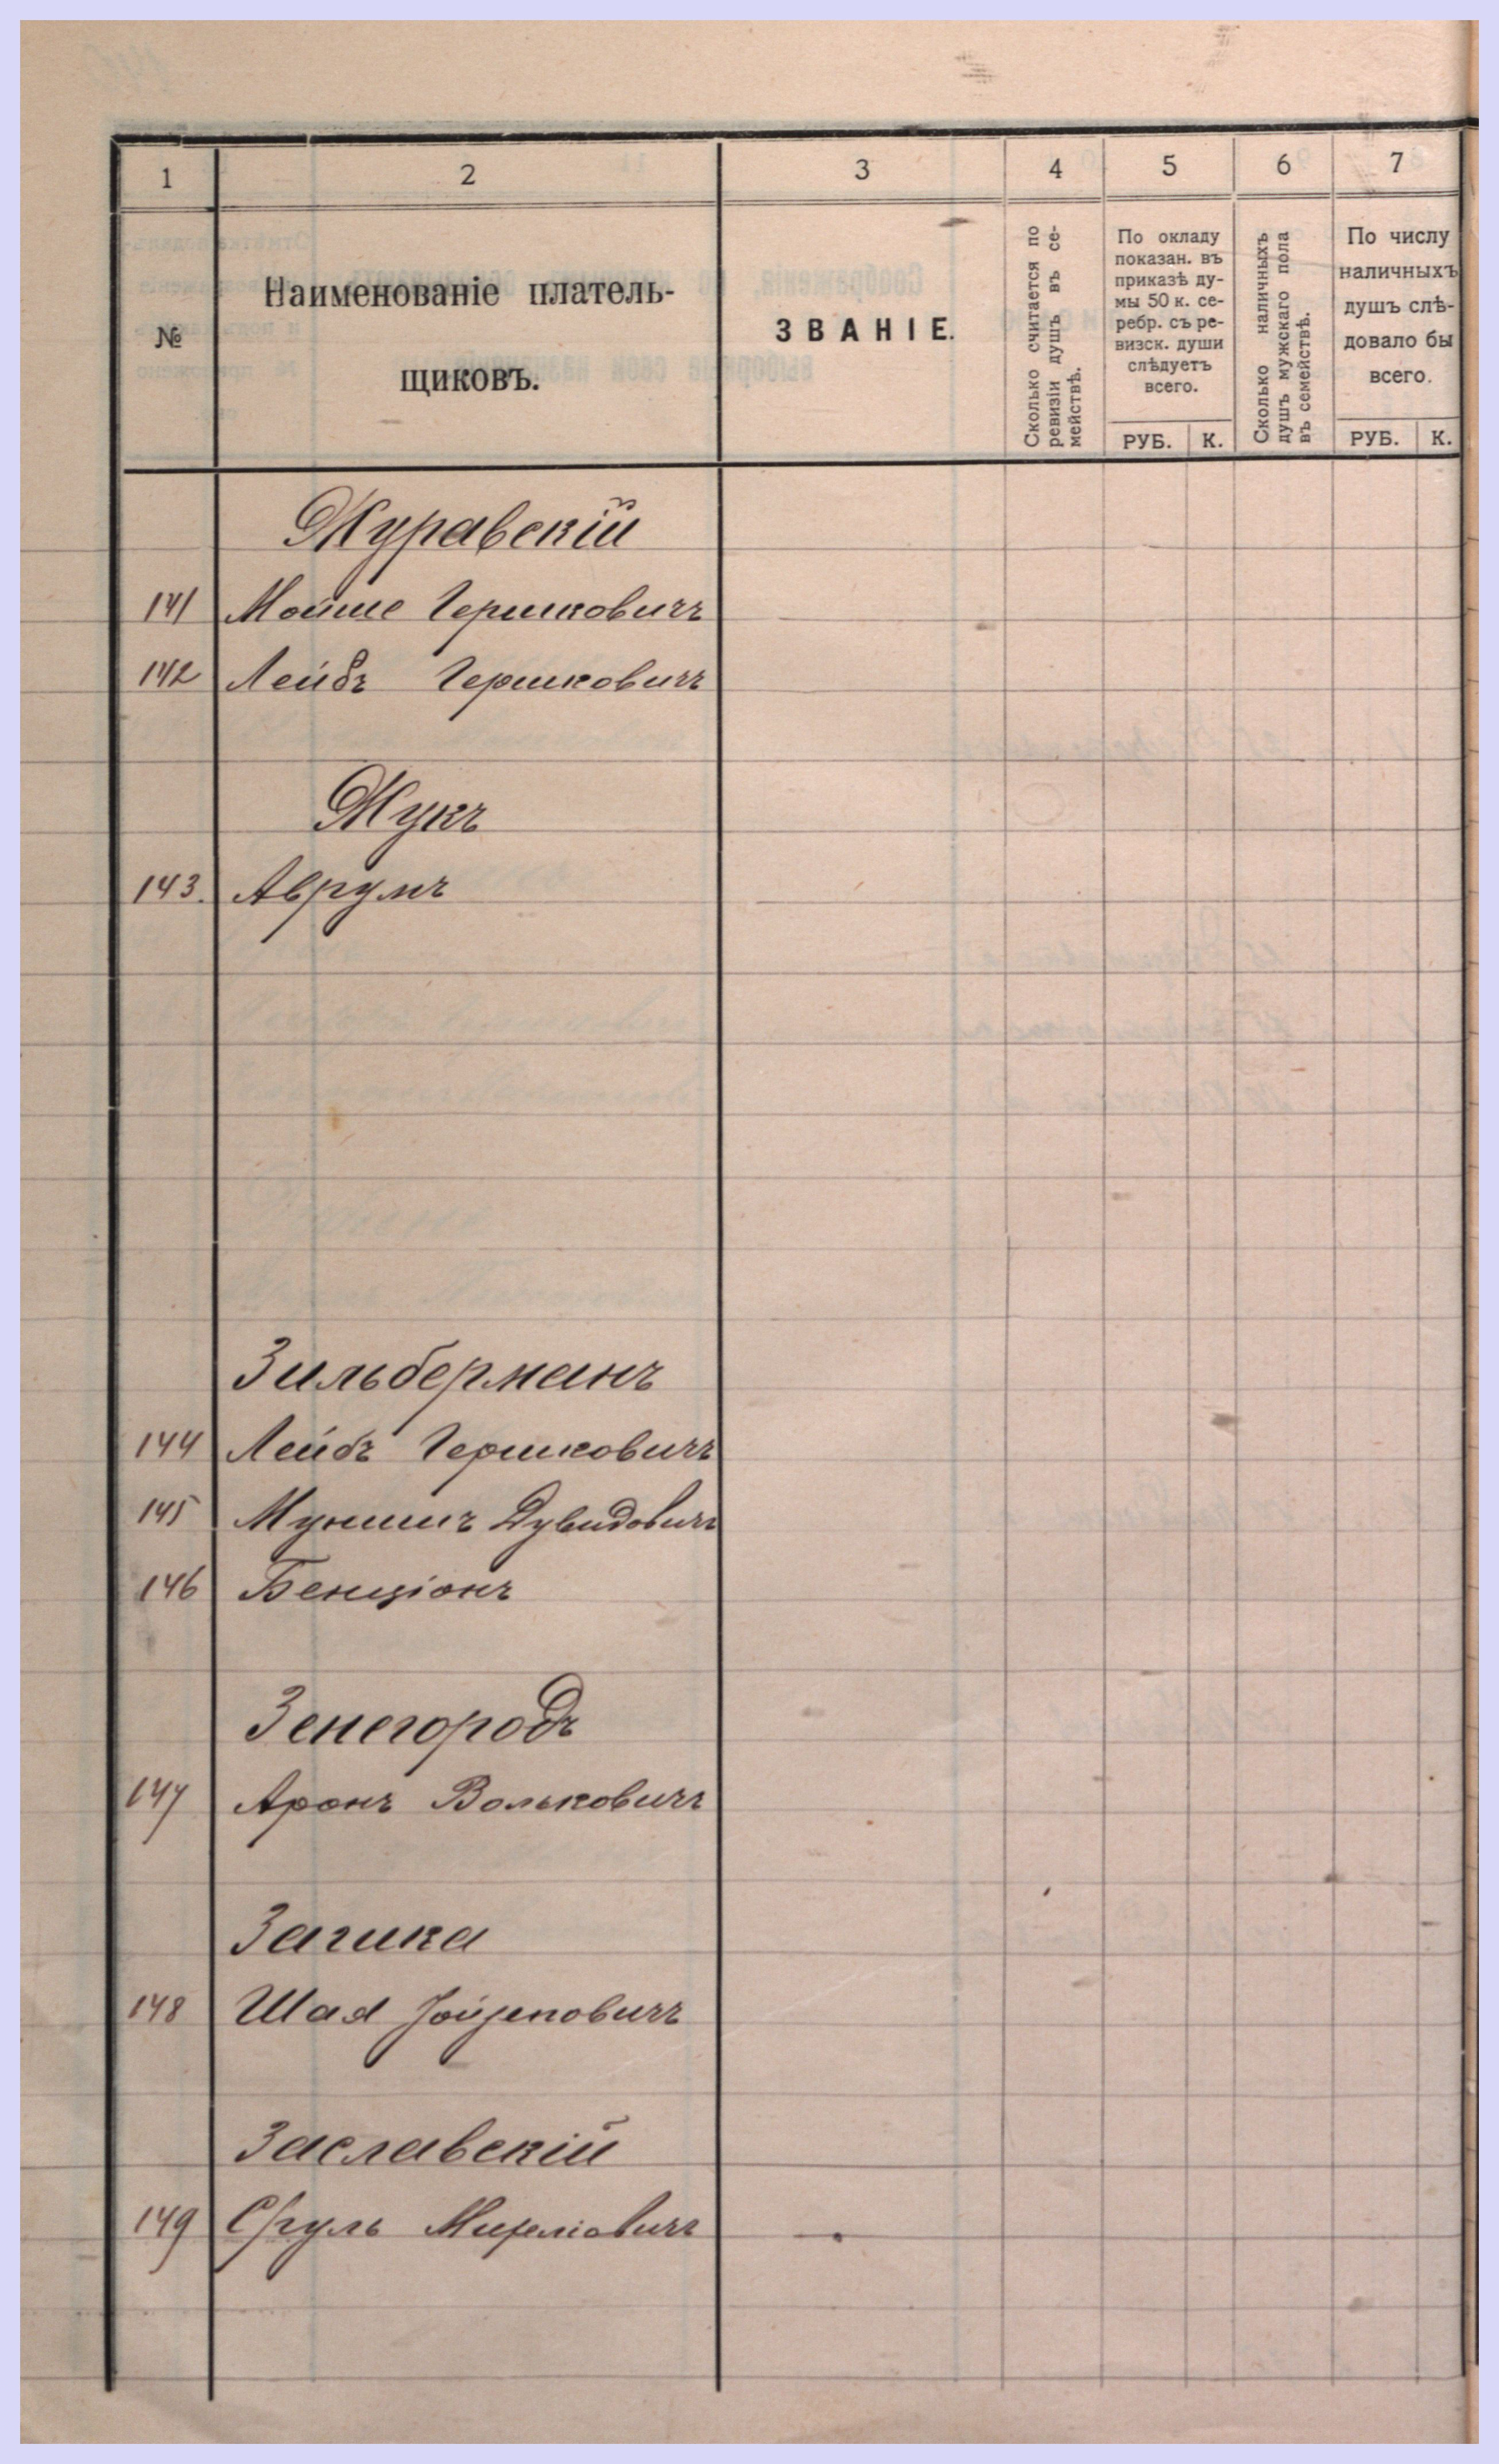 1 2 3 4 5 6 7
№
Наименованіе платель-
щиковъ.
ЗВАНІЕ.
Сколько считается по
ревизіи душъ въ се-
мействѣ.
По окладу
показан. въ
приказѣ ду-
мы 50 к. се-
ребр. съ ре-
визск. души
слѣдуетъ
всего.
РУБ. К.
Сколько наличныхъ
душъ мужскаго пола
въ семействѣ.
По числу
наличныхъ
душъ слѣ-
довало бы
всего.
РУБ. К.
Журавскій
141 Мойше Гершковичъ
142 Лейбъ Гершковичъ
Жукъ
143. Аврумъ
Зильберманъ
144 Лейбъ Гершковичъ
145 Мунишъ Дувидовичъ
146 Бенціонъ
Зенегородъ
147 Аронъ Вольковичъ
Загика
148 Шая
Заславскій
149 Сруль